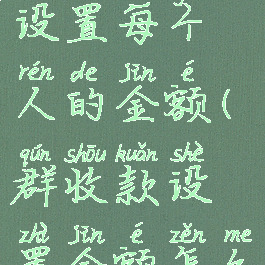 设置每个
rén de jīn é
人的金额(
qún shōu kuǎn shè
群收款设
zhì jīn é zěn me
置金额怎么